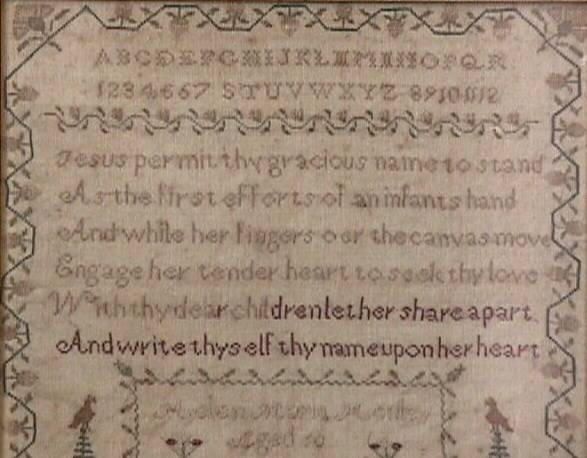 ABCDEFGHIJKLMNOPQR
1234567 STUVWXYZ 89101112
Jesus permit thy gracious name to stand
As the first efforts of an infants hand
And while her fingers oer the canvas move
Engage her tender heart to seek thy love
With thy dear children let her share a part
And write thyself thy name upon her heart
Helen Maria
Aged 10